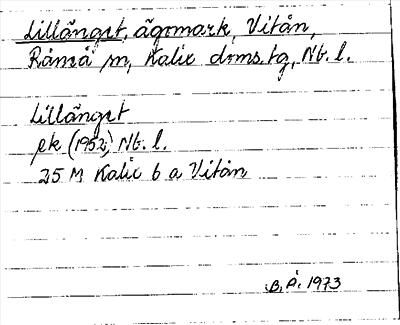 Lillänget, ägomark, Vitån,
Råneå sn, Kalix doms.tg, Nb. l.
Lillänget
ek (1952) Nb. l.
25 M Kalix 6 a Vitån
B. Å. 1973